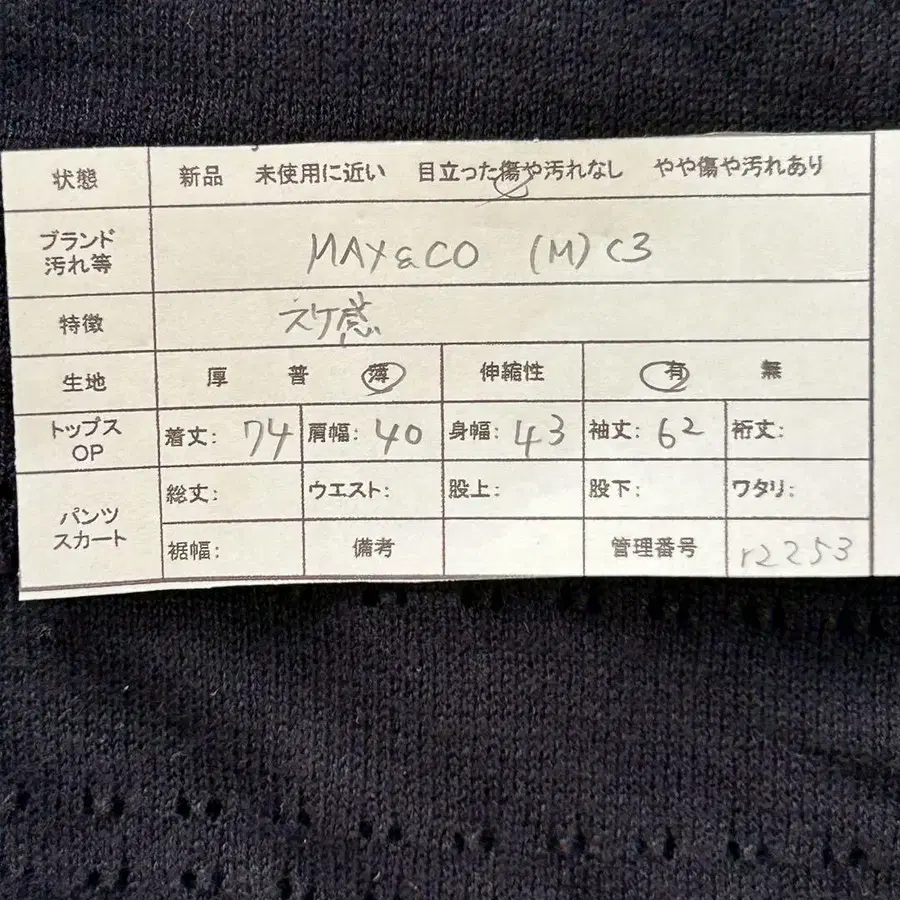 状態 新品 未使用に近い 目立った傷や汚れなし やや傷や汚れあり
ブランド
汚れ等
MAX&CO (M) C3
特徴 スケ感
生地 厚 普 薄 伸縮性 有 無
トップス
OP
着丈: 74 肩幅: 40 身幅: 43 袖丈: 62 裄丈:
パンツ
スカート
総丈: ウエスト: 股上: 股下: ワタリ:
裾幅: 備考 管理番号 r2253